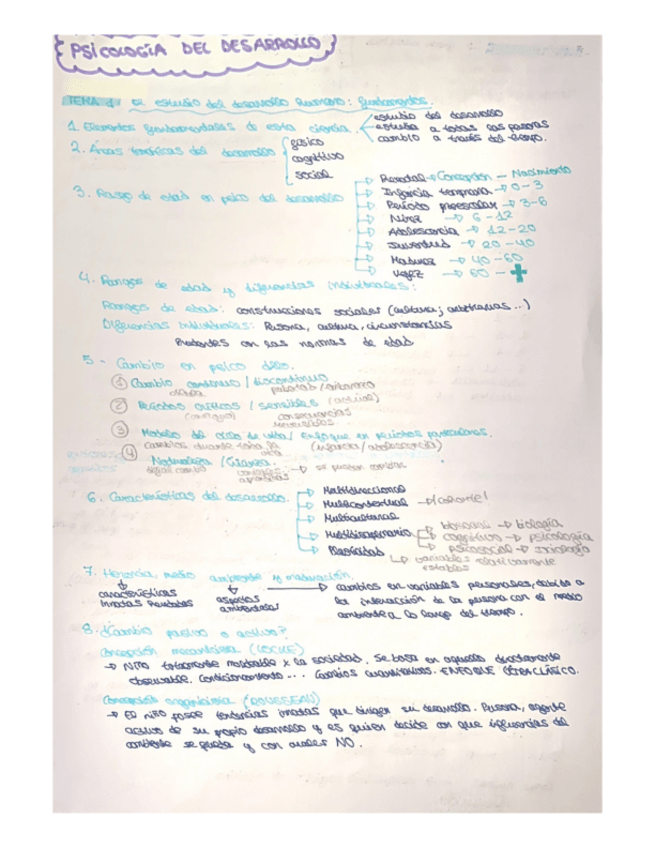 PSICOLOGÍA DEL DESARROLLO
TEMA 1: El estudio del desarrollo humano: fundamentos.
1. Elementos fundamentales de esta ciencia.
estudio del desarrollo
estudia a todas las personas
cambio a través del tiempo.
2. Áreas temáticas del desarrollo
físico
cognitivo
social
3. Rasgo de edad en psico del desarrollo
Prenatal → Concepción - Nacimiento
Infancia temprana → 0-3
Período preescolar → 3-6
Niñez → 6-12
Adolescencia → 12-20
Juventud → 20-40
Madurez → 40-60
Vejez → 60 - +
4. Rangos de edad y diferencias individuales:
Rangos de edad: construcciones sociales (cultura; arbitrarias...)
Diferencias individuales: Persona, cultura, circunstancias
con las normas de edad
5- Cambio en psico dllo.
① Cambio continuo / discontinuo
② Períodos críticos / sensibles (actual)
consecuencias
reversibles
③ Modelo del ciclo de vida / Enfoque en períodos particulares.
cambios durante toda la vida
(infancia / adolescencia)
④ Naturaleza / Crianza.
→ se pueden
6. Características del desarrollo.
Multidireccional
Multicontextual → (cohorte)
Multicultural
Multidisciplinario
Plasticidad
biosocial → biología
cognitivo → psicología
psicosocial → sociología
→ variables relativamente estables
7. Herencia, medio ambiente y maduración
características innatas heredadas
aspectos ambientales
cambios en variables personales, debido a
la interacción de la persona con el medio
ambiente a lo largo del tiempo.
8. ¿Cambio pasivo o activo?
Concepción mecanicista (LOCKE)
→ Niño totalmente moldeable x la sociedad. Se basa en aquello directamente
observable. Condicionamiento... Cambios cuantitativos. ENFOQUE CLÁSICO.
Concepción organicista (ROUSSEAU)
→ El niño posee tendencias innatas que dirigen su desarrollo. Persona, agente
activo de su propio desarrollo y es quien decide con que influencias del
ambiente se queda y con cuales NO.